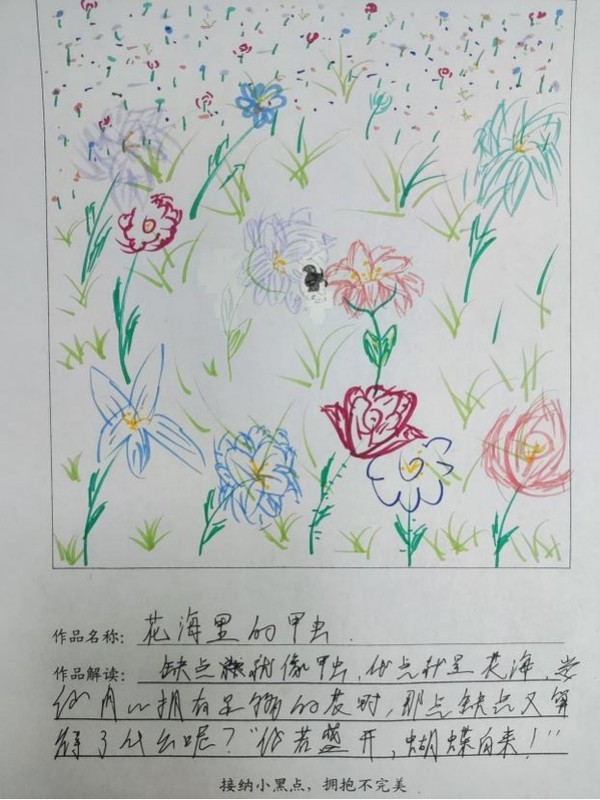 作品名称：花海里的甲虫.
作品解读：缺点就像甲虫，优点就是花海，当
你内心拥有足够的花时，那点缺点又算
得了什么呢？"你若盛开，蝴蝶自来！"
接纳小黑点，拥抱不完美